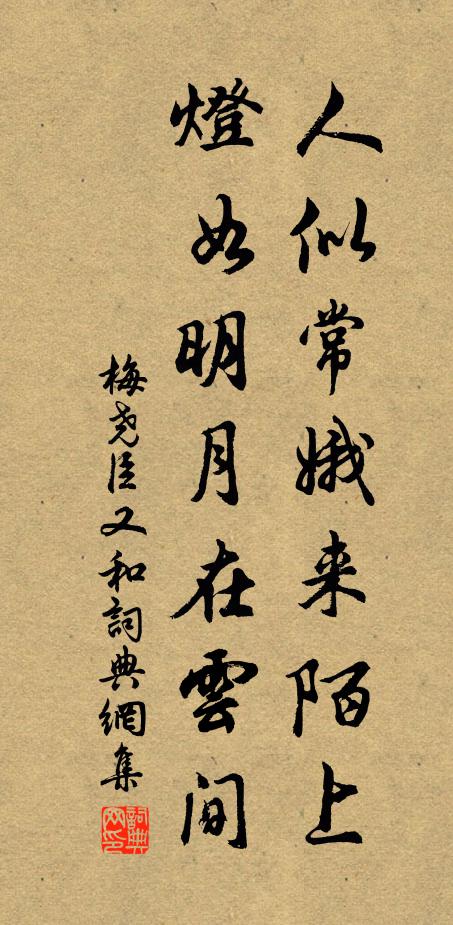 人似常娥来陌上
燈如明月在雲間
梅堯臣又和詞典網集
詞典网印